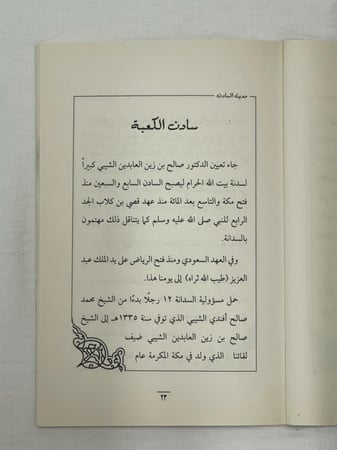 حديث السادن
سادن الكعبة
جاء تعيين الدكتور صالح بن زين العابدين الشيبي كبيراً
لسدنة بيت الله الحرام ليصبح السادن السابع والسبعين منذ
فتح مكة والتاسع بعد المائة منذ عهد قصي بن كلاب الجد
الرابع للنبي صلى الله عليه وسلم كما يتناقل ذلك مهتمون
بالسدانة.
وفي العهد السعودي ومنذ فتح الرياض على يد الملك عبد
العزيز (طيب الله ثراه) إلى يومنا هذا.
حمل مسؤولية السدانة ١٢ رجلًا بدءًا من الشيخ محمد
صالح أفندي الشيبي الذي توفي سنة ١٣٣٥هـ إلى الشيخ
صالح بن زين العابدين الشيبي ضيف
لقائنا الذي ولد في مكة المكرمة عام
٢٣